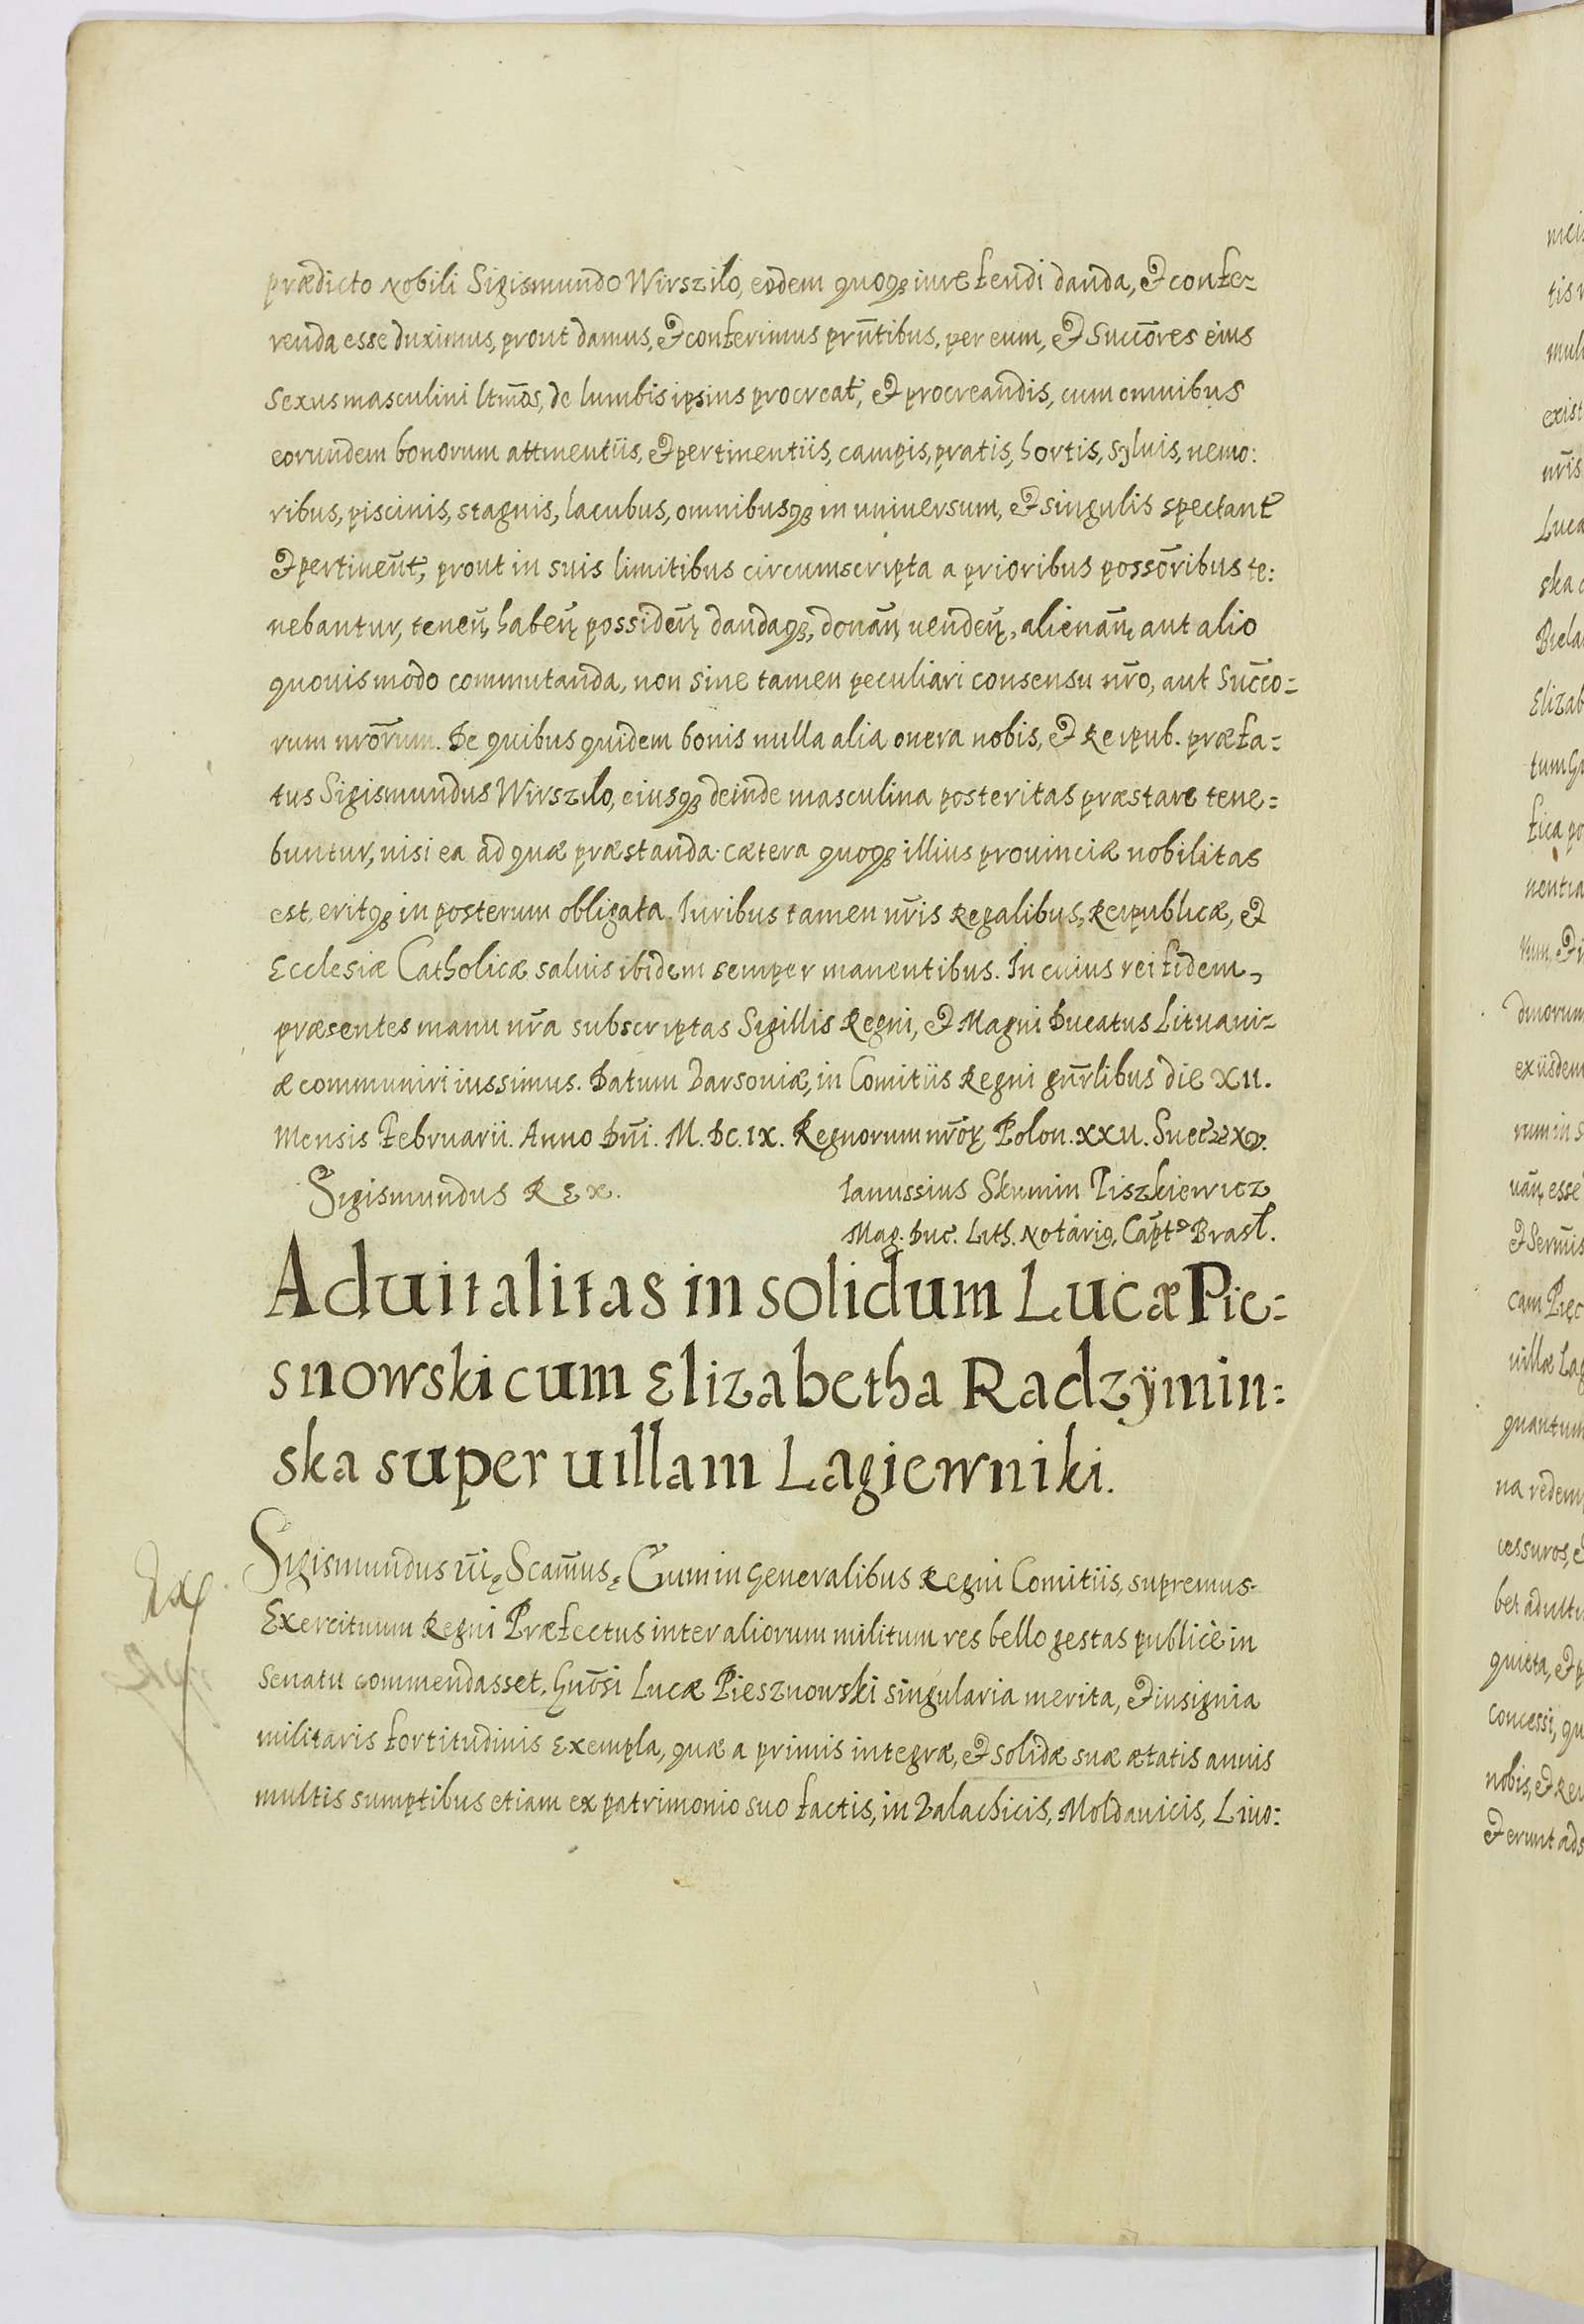 prædicto Nobili Sigismundo Wirszilo, eodem quoqꝫ iure feudi danda, & confe-
renda esse duximus, prout damus, & conferimus prñtibus, per eum, & Succores eius
sexus masculini ltmos, de lumbis ipsius procreat, & procreandis, cum omnibus
eorundem bonorum attinentiis, & pertinentiis, campis, pratis, hortis, syluis, nemo:
ribus, piscinis, stagnis, lacubus, omnibusqꝫ in uniuersum, & singulis spectant
& pertineñt, prout in suis limitibus circumscripta a prioribus possoribus te:
nebantur, teneñ, habeñ, possideñ, dandaqꝫ, donañ, uendeñ, alienañ, aut alio
quouis modo commutanda, non sine tamen peculiari consensu nr̃o, aut Succo-
rum nr̃orum. De quibus quidem bonis nulla alia onera nobis, & Reipub. præfa-
tus Sigismundus Wirszilo, eiusqꝫ deinde masculina posteritas præstare tene-
buntur, nisi ea ad quæ præstanda cætera quoqꝫ illius prouinciæ nobilitas
est, eritqꝫ in posterum obligata. Iuribus tamen nr̃is Regalibus, Reipublicæ, &
Ecclesiæ Catholicæ saluis ibidem semper manentibus. In cuius rei fidem,
præsentes manu nr̃a subscriptas Sigillis Regni, & Magni Ducatus Lituani-
æ communiri iussimus. Datum Varsouiæ, in Comitiis Regni gnr̃libus die XII.
Mensis Februarii. Anno Dñi. M. DC. IX. Regnorum nr̃oꝝ Polon. XXII. Suec XV.
Sigismundus Rex.
Ianussius Skumin Tiszkiewicz
Mag. Duc. Lith. Notarius, Capt Brasl.
Aduitalitas in solidum Lucæ Pie:
snowski cum Elizabetha Radzÿmin:
ska super uillam Lagiewniki.
Sigismundus Cum in Generalibus Regni Comitiis, supremus
Exercituum Regni Præfectus inter aliorum militum res bello gestas publicè in
Senatu commendasset, Gnõsi Lucæ Piesznowski singularia merita, & insignia
militaris fortitudinis exempla, quæ a primis integræ, & solidæ suæ ætatis annis
multis sumptibus etiam ex patrimonio suo factis, in Valachicis, Moldauicis, Liuo: